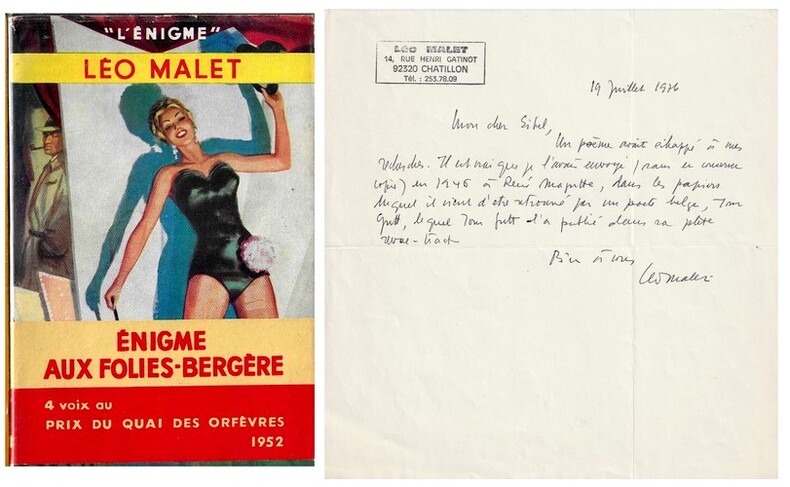 "L'ÉNIGME"
LÉO MALET
ÉNIGME
AUX FOLIES-BERGÈRE
4 voix au
PRIX DU QUAI DES ORFÈVRES
1952
LÉO MALET
14, RUE HENRI GATINOT
92320 CHATILLON
Tél. : 253.78.09
19 Juillet 1976
Mon cher
Un poème avait échappé à mes
recherches. Il est vrai que je l'avais envoyé (sans en conserver
copie) en 1946 à René Magritte, dans les papiers
duquel il vient d'être retrouvé par un poète belge, Tom
Gutt, lequel Tom Gutt l'a publié dans sa petite
revue-tract
Bien à vous
Léo Malet